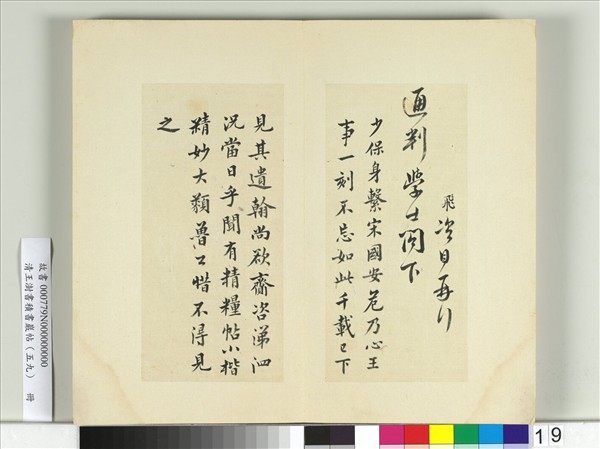 飛咨目再拜
通判學士閣下
少保身繫宋國安危乃心王
事一刻不忘如此千載已下
見其遺翰尚欲齎咨涕泗
況當日乎聞有精糧帖小楷
精妙大類魯公惜不得見
之
故書 000779N000000000
清王澍書積書巖帖（五九） 冊
19